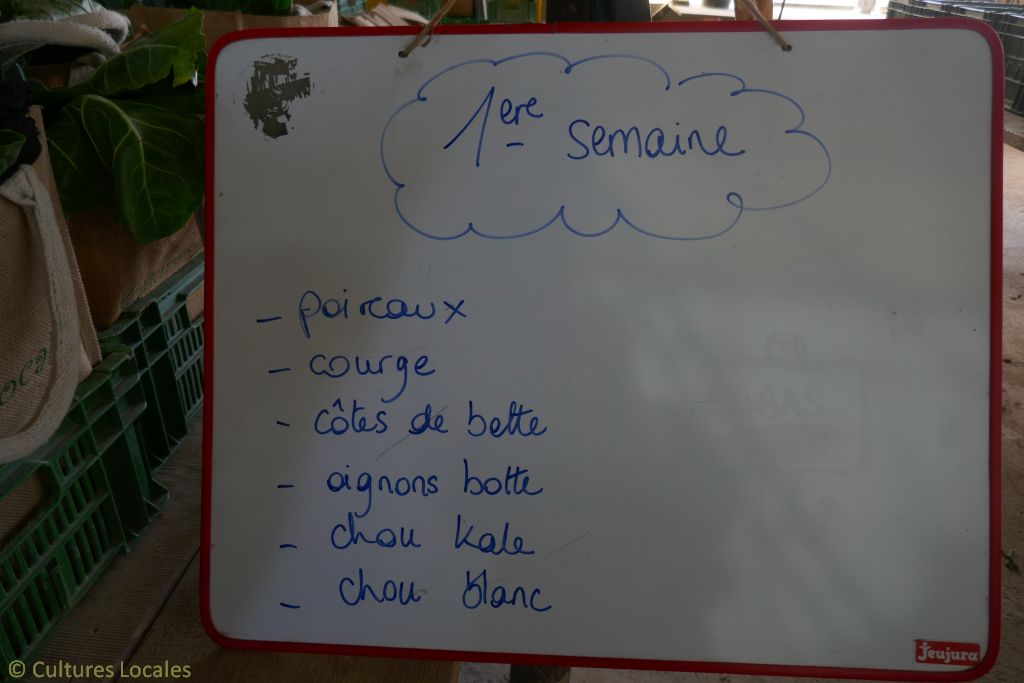 1ere semaine
- poireaux
- courge
- côtes de bette
- oignons botte
- chou kale
- chou blanc
Jeujura
© Cultures Locales